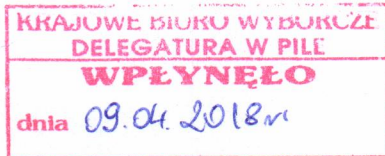 KRAJOWE BIURO WYBORCZE
DELEGATURA W PILE
WPŁYNĘŁO
dnia 09.04.2018r